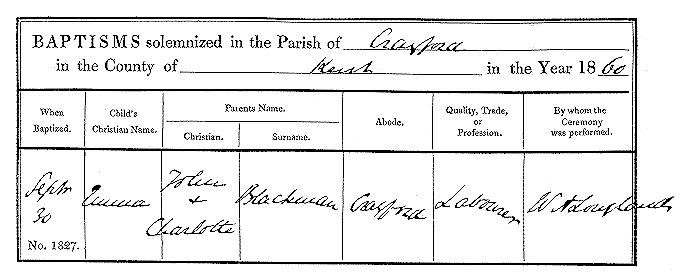 BAPTISMS solemnized in the Parish of Crayford
in the County of Kent in the Year 1860
When Baptized.
Child's Christian Name.
Parents Name.
Christian.
Surname.
Abode.
Quality, Trade, or Profession.
By whom the Ceremony was performed.
Septr 30
No. 1827.
Emma
John + Charlotte
Blackman
Crayford
Labourer
W A